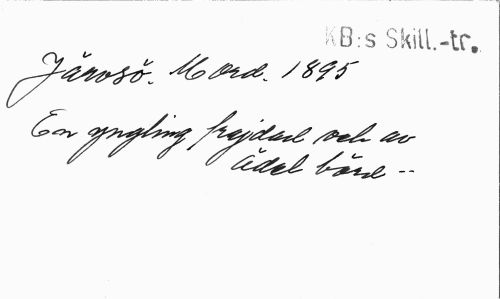 KB:s Skill.-tr.
Järvsö. Mord. 1895
En yngling frejdad och av
ädel börd --